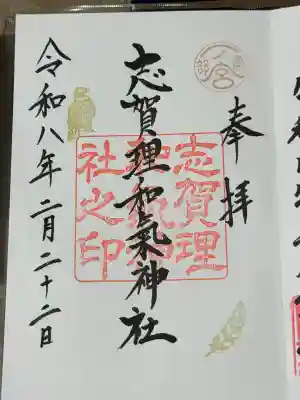 奉拝
志賀理和氣神社
志賀理
和氣神
社之印
令和八年二月二十二日
一宮